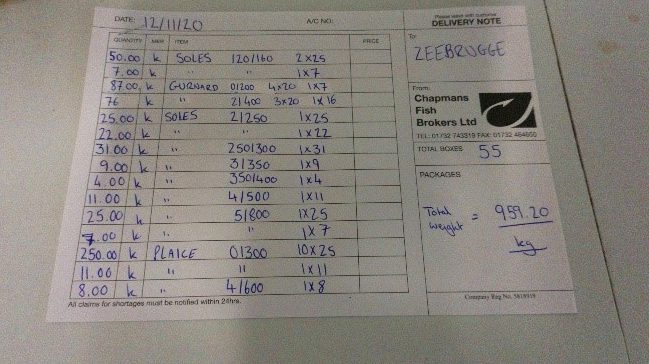 DATE: 12/11/20 A/C NO:
QUANTITY ITEM PRICE
50.00 k SOLES 120/160 2x25
7.00 k " " 1x7
87.00 k GURNARD 0/200 4x20 1x7
76 k " 2/400 3x20 1x16
25.00 k SOLES 2/250 1x25
22.00 k " " 1x22
31.00 k " 250/300 1x31
9.00 k " 3/350 1x9
4.00 k " 350/400 1x4
11.00 k " 4/500 1x11
25.00 k " 5/800 1x25
7.00 k " " 1x7
250.00 k PLAICE 0/300 10x25
11.00 k " " 1x11
8.00 k " 4/600 1x8
All claims for shortages must be notified within 24hrs.
Please leave with customer
DELIVERY NOTE
To:
ZEEBRUGGE
From:
Chapmans
Fish
Brokers Ltd
TEL: 01732 743319 FAX: 01732 464650
TOTAL BOXES 55
PACKAGES
Total weight = 959.20 kg
Company Reg No. 5818918